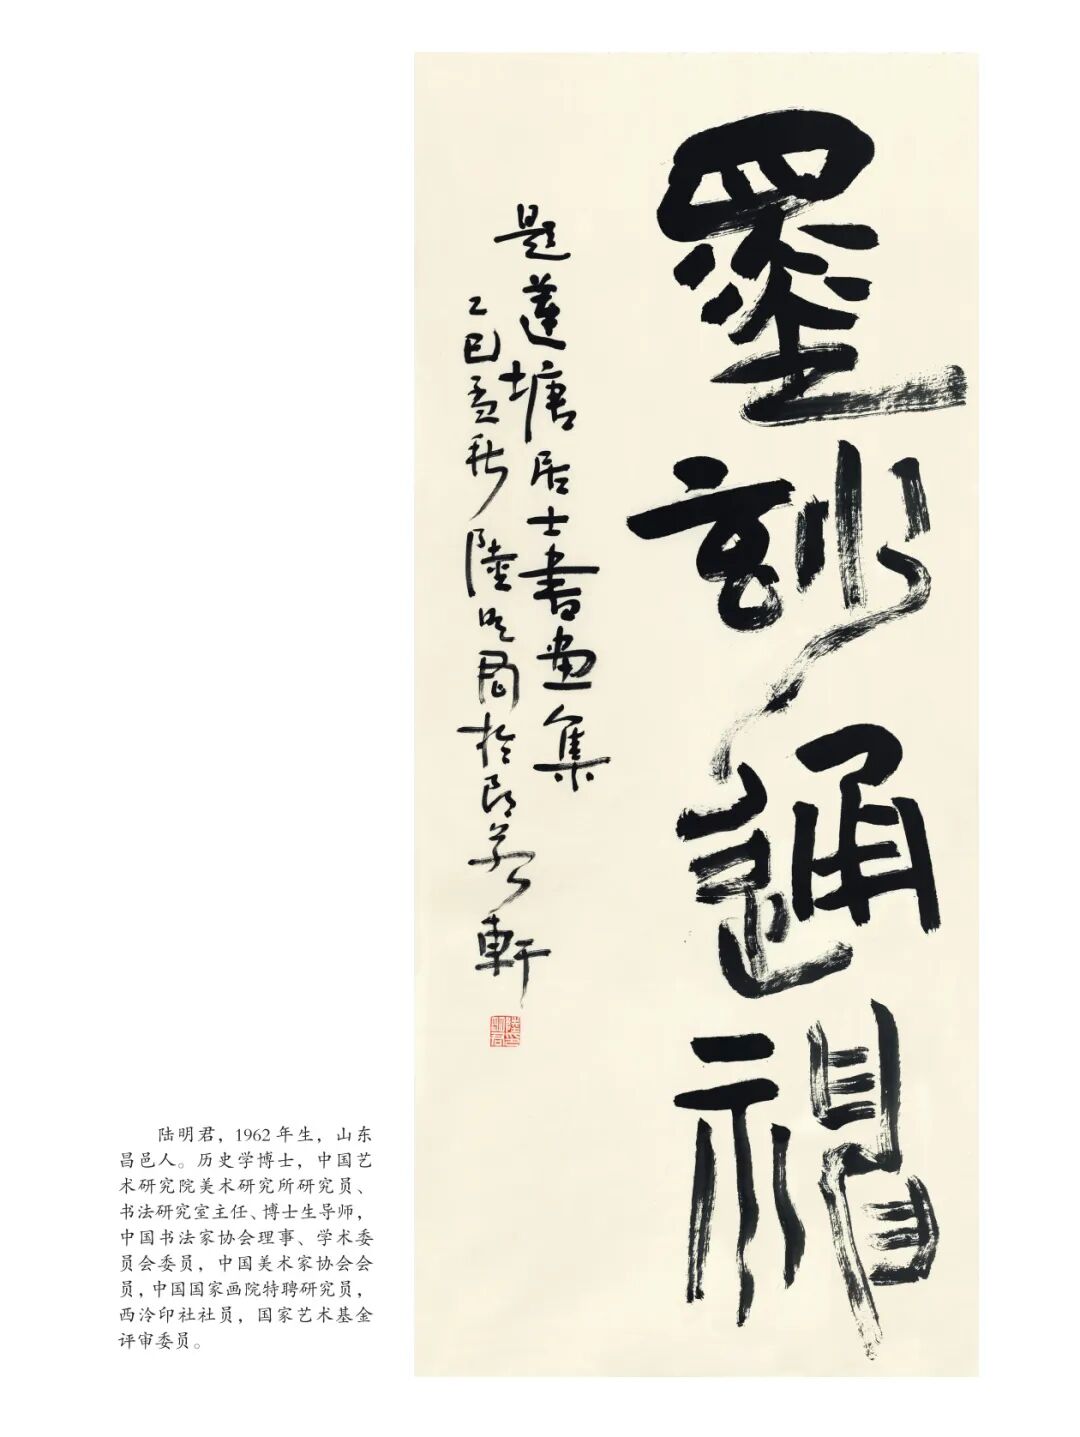 墨玅通神
題蓮塘居士書畫集
乙巳孟秋陸明君於軒
陆明君，1962年生，山东
昌邑人。历史学博士，中国艺
术研究院美术研究所研究员、
书法研究室主任、博士生导师，
中国书法家协会理事、学术委
员会委员，中国美术家协会会
员，中国国家画院特聘研究员，
西泠印社社员，国家艺术基金
评审委员。